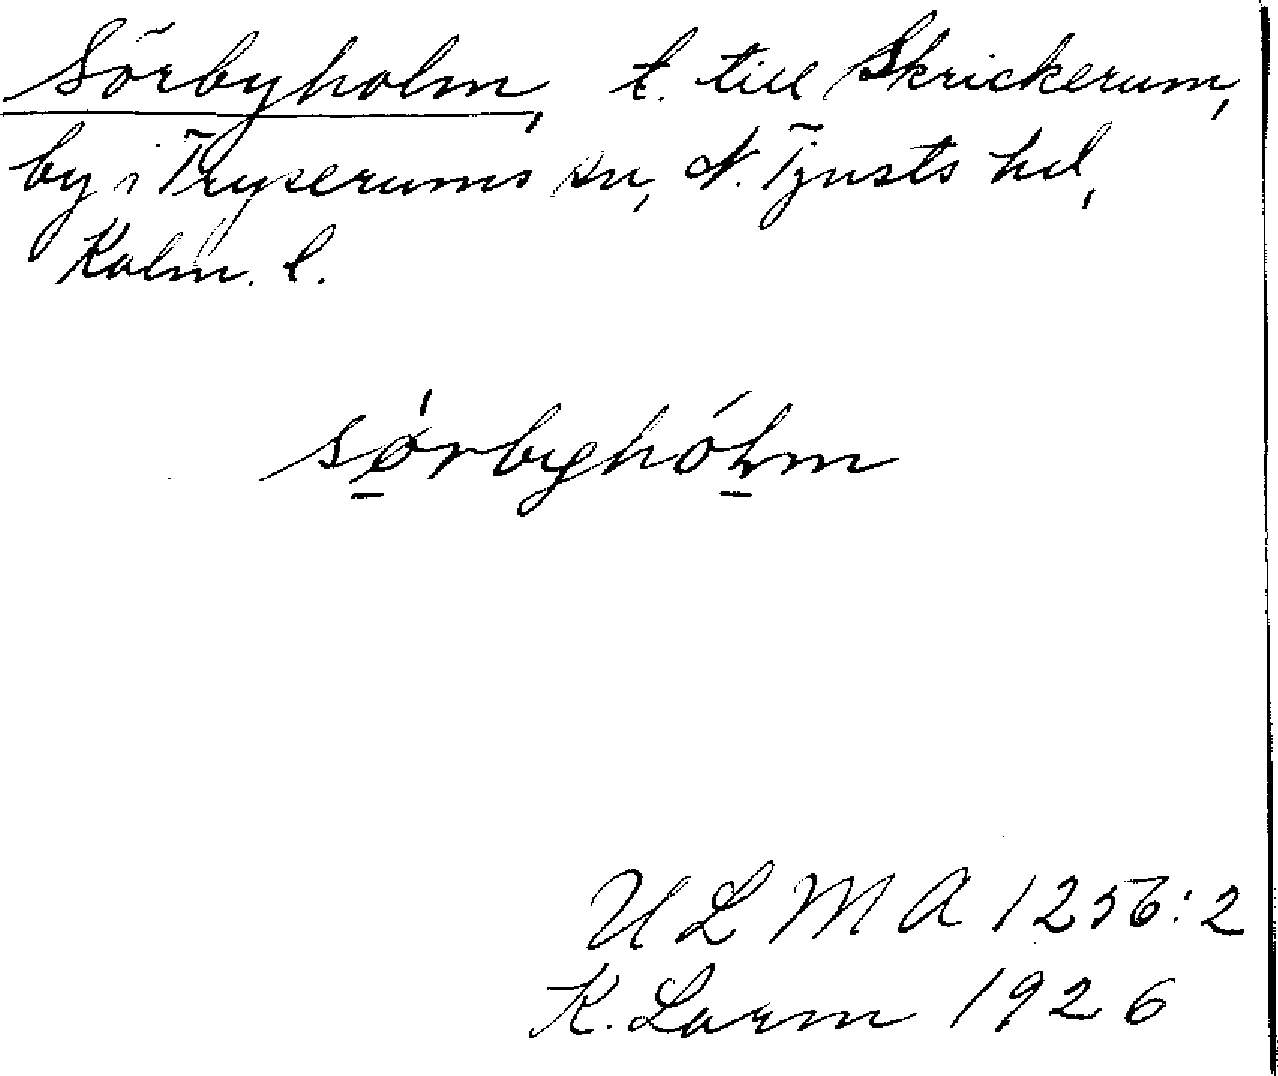 Sörbyholm, t. till Skrickerum,
by i Tryserums sn, N. Tjusts hd,
Kalm. l.
sørbyhólm
ULMA 1256:2
K. Larm 1926